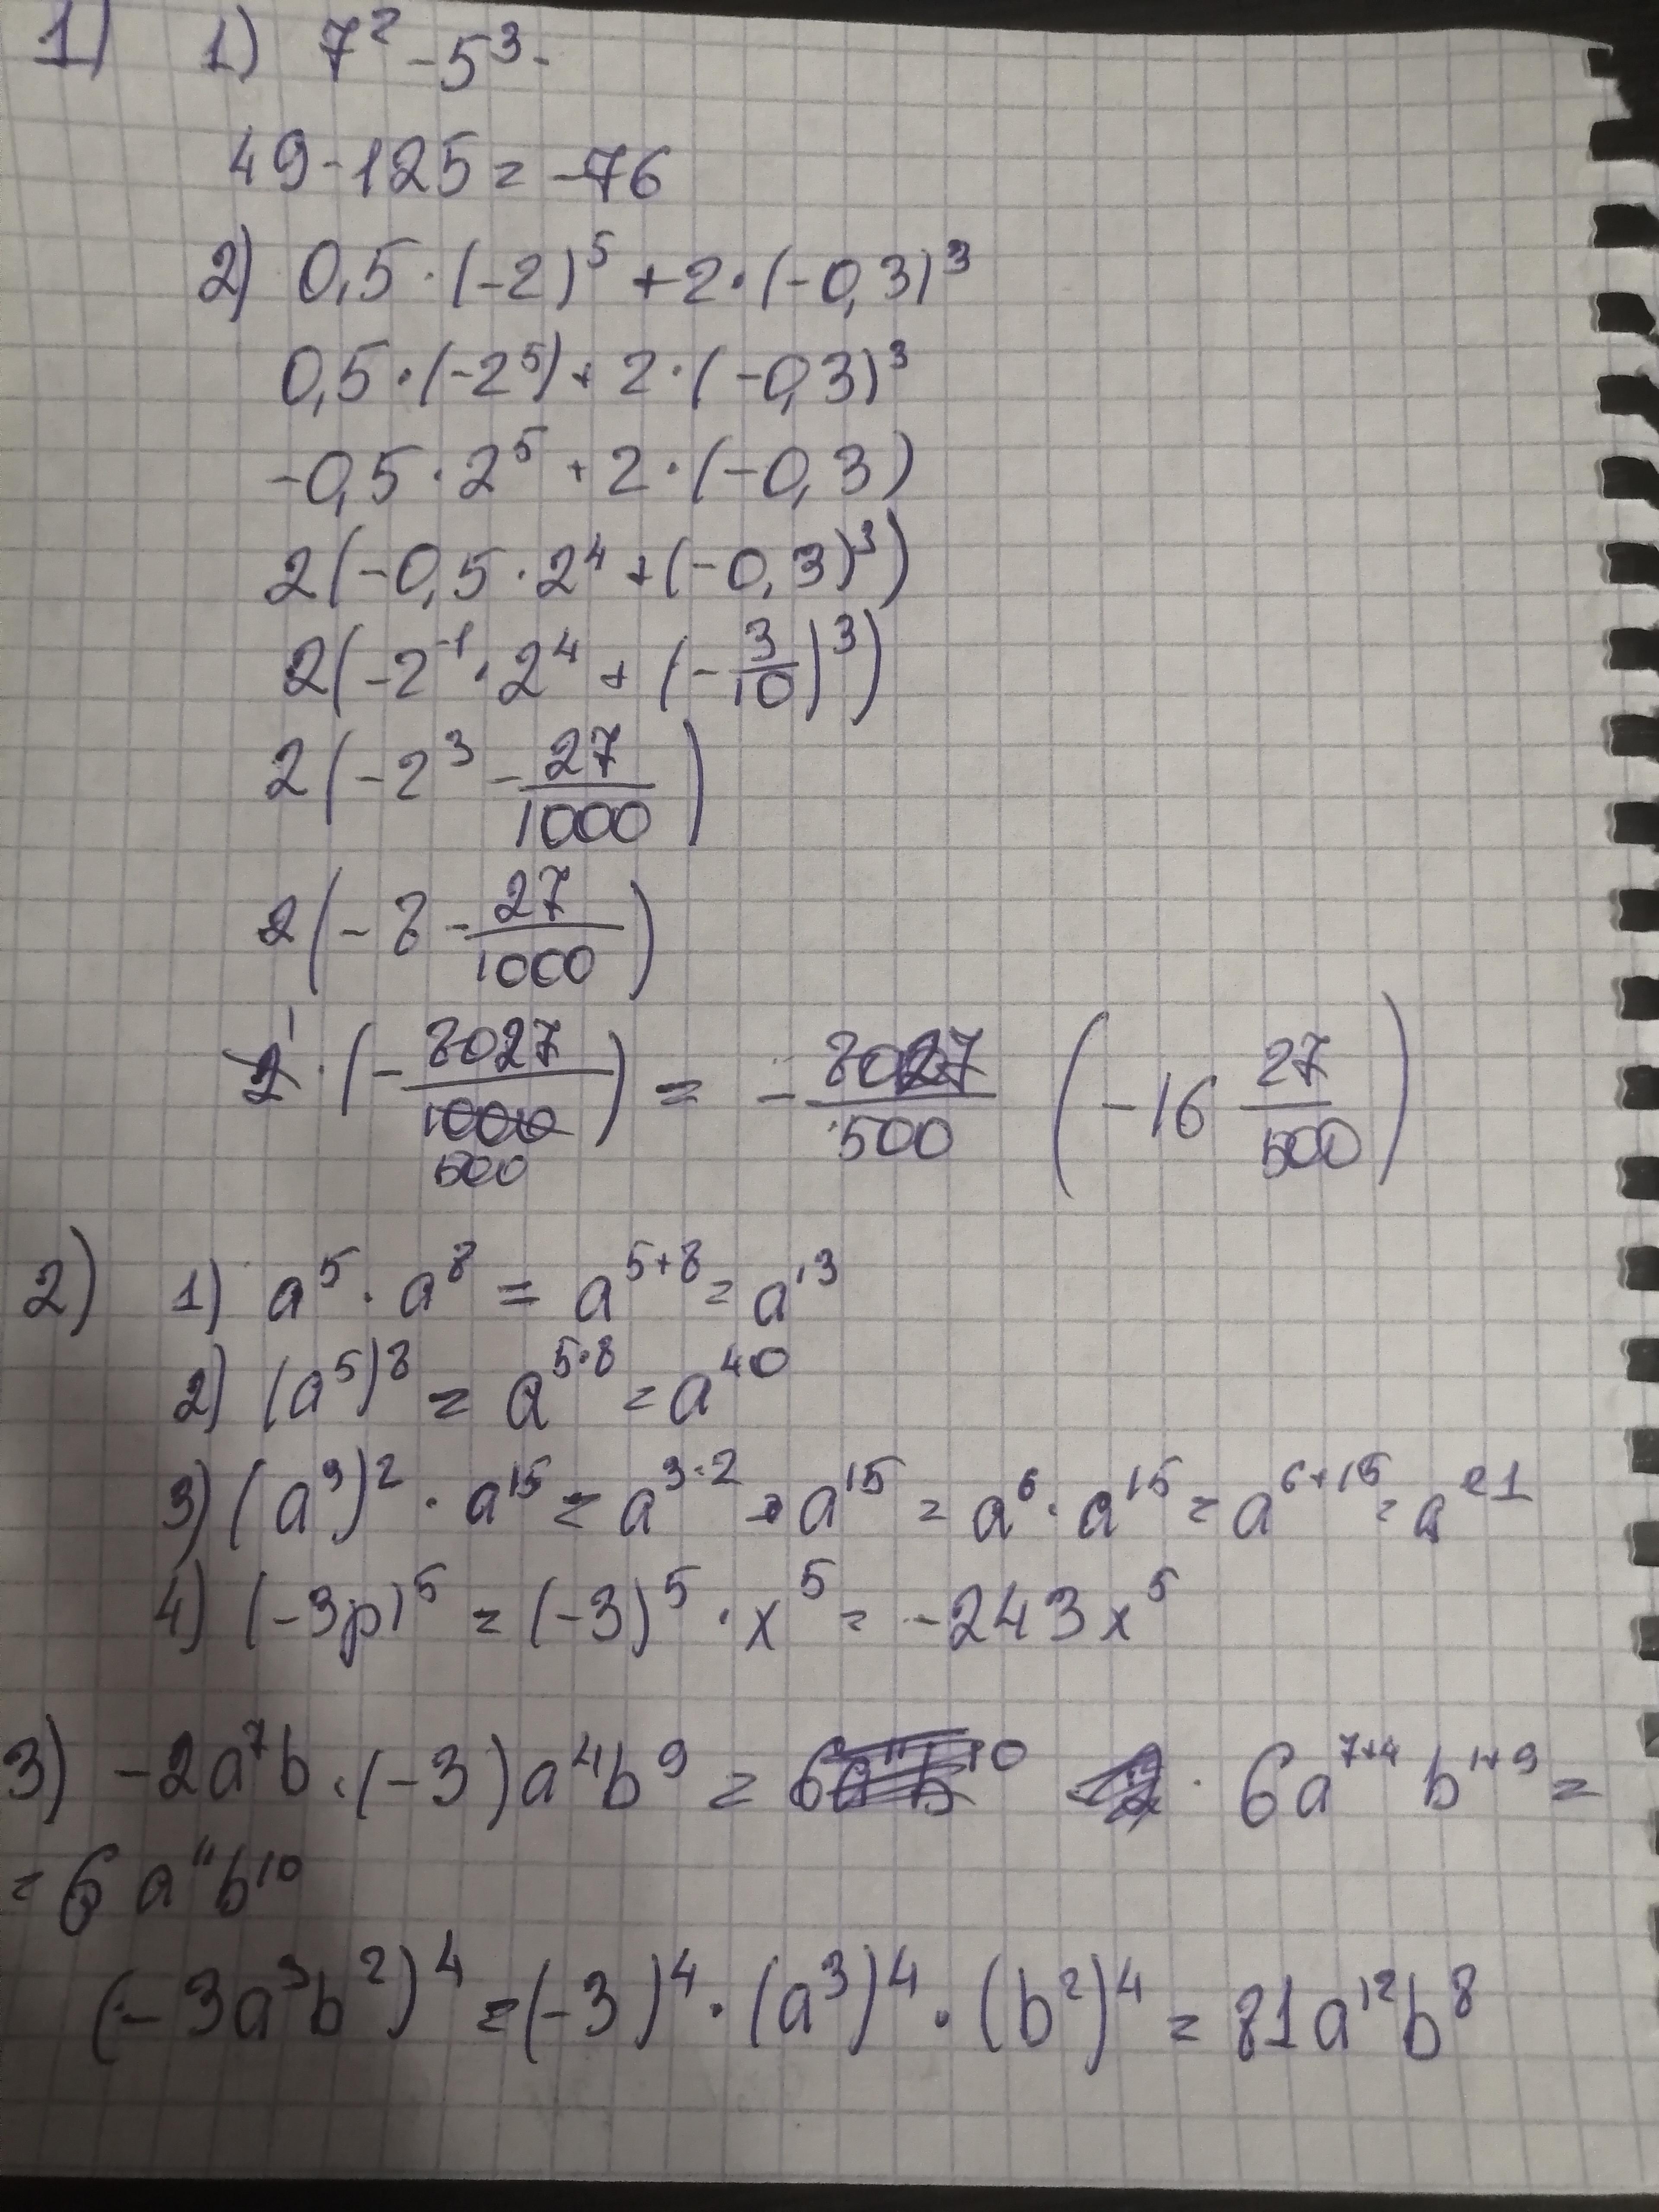 1) 1) 7² - 5³ -
49 - 125 = -76
2) 0,5 · (-2)⁵ + 2 · (-0,3)³
0,5 · (-2⁵) + 2 · (-0,3)³
-0,5 · 2⁵ + 2 · (-0,3)
2(-0,5 · 2⁴ + (-0,3)³)
2(-2⁻¹ · 2⁴ + (-3/10)³)
2(-2³ - 27/1000)
2(-8 - 27/1000)
2 1 · (-8027/1000 500) = -8027/500 (-16 27/500)
2) 1) a⁵ · a⁸ = a⁵⁺⁸ = a¹³
2) (a⁵)⁸ = a^(5·8) = a⁴⁰
3) (a³)² · a¹⁵ = a^(3·2) · a¹⁵ = a⁶ · a¹⁵ = a⁶⁺¹⁵ = a²¹
4) (-3p)⁵ = (-3)⁵ · x⁵ = -243x⁵
3) -2a⁷b · (-3)a⁴b⁹ = 6a¹¹b¹⁰ · 6a⁷⁺⁴b¹⁺⁹ =
= 6a¹¹b¹⁰
(-3a³b²)⁴ = (-3)⁴ · (a³)⁴ · (b²)⁴ = 81a¹²b⁸